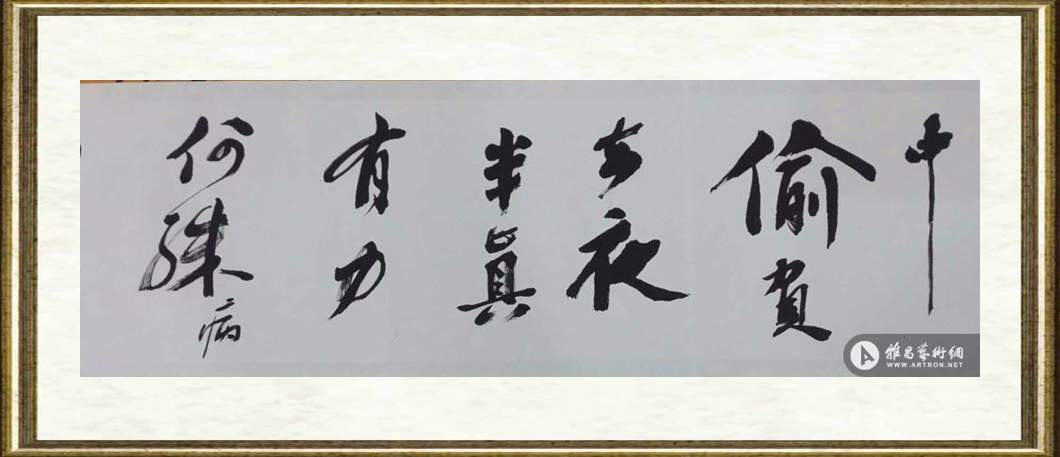 中
偷負
去夜
半眞
有力
何殊病
雅昌藝術網
WWW.ARTRON.NET